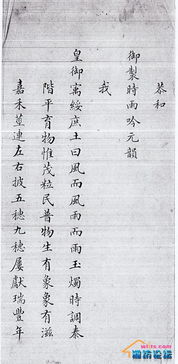 恭和
御製時雨吟元韻
我
皇御寓綏庶土曰風而風雨而雨玉燭時調泰
階平育物惟茂粒民普物生有象象有滋
嘉禾連左右披五穗九穗屢獻瑞豐年
潍坊论坛